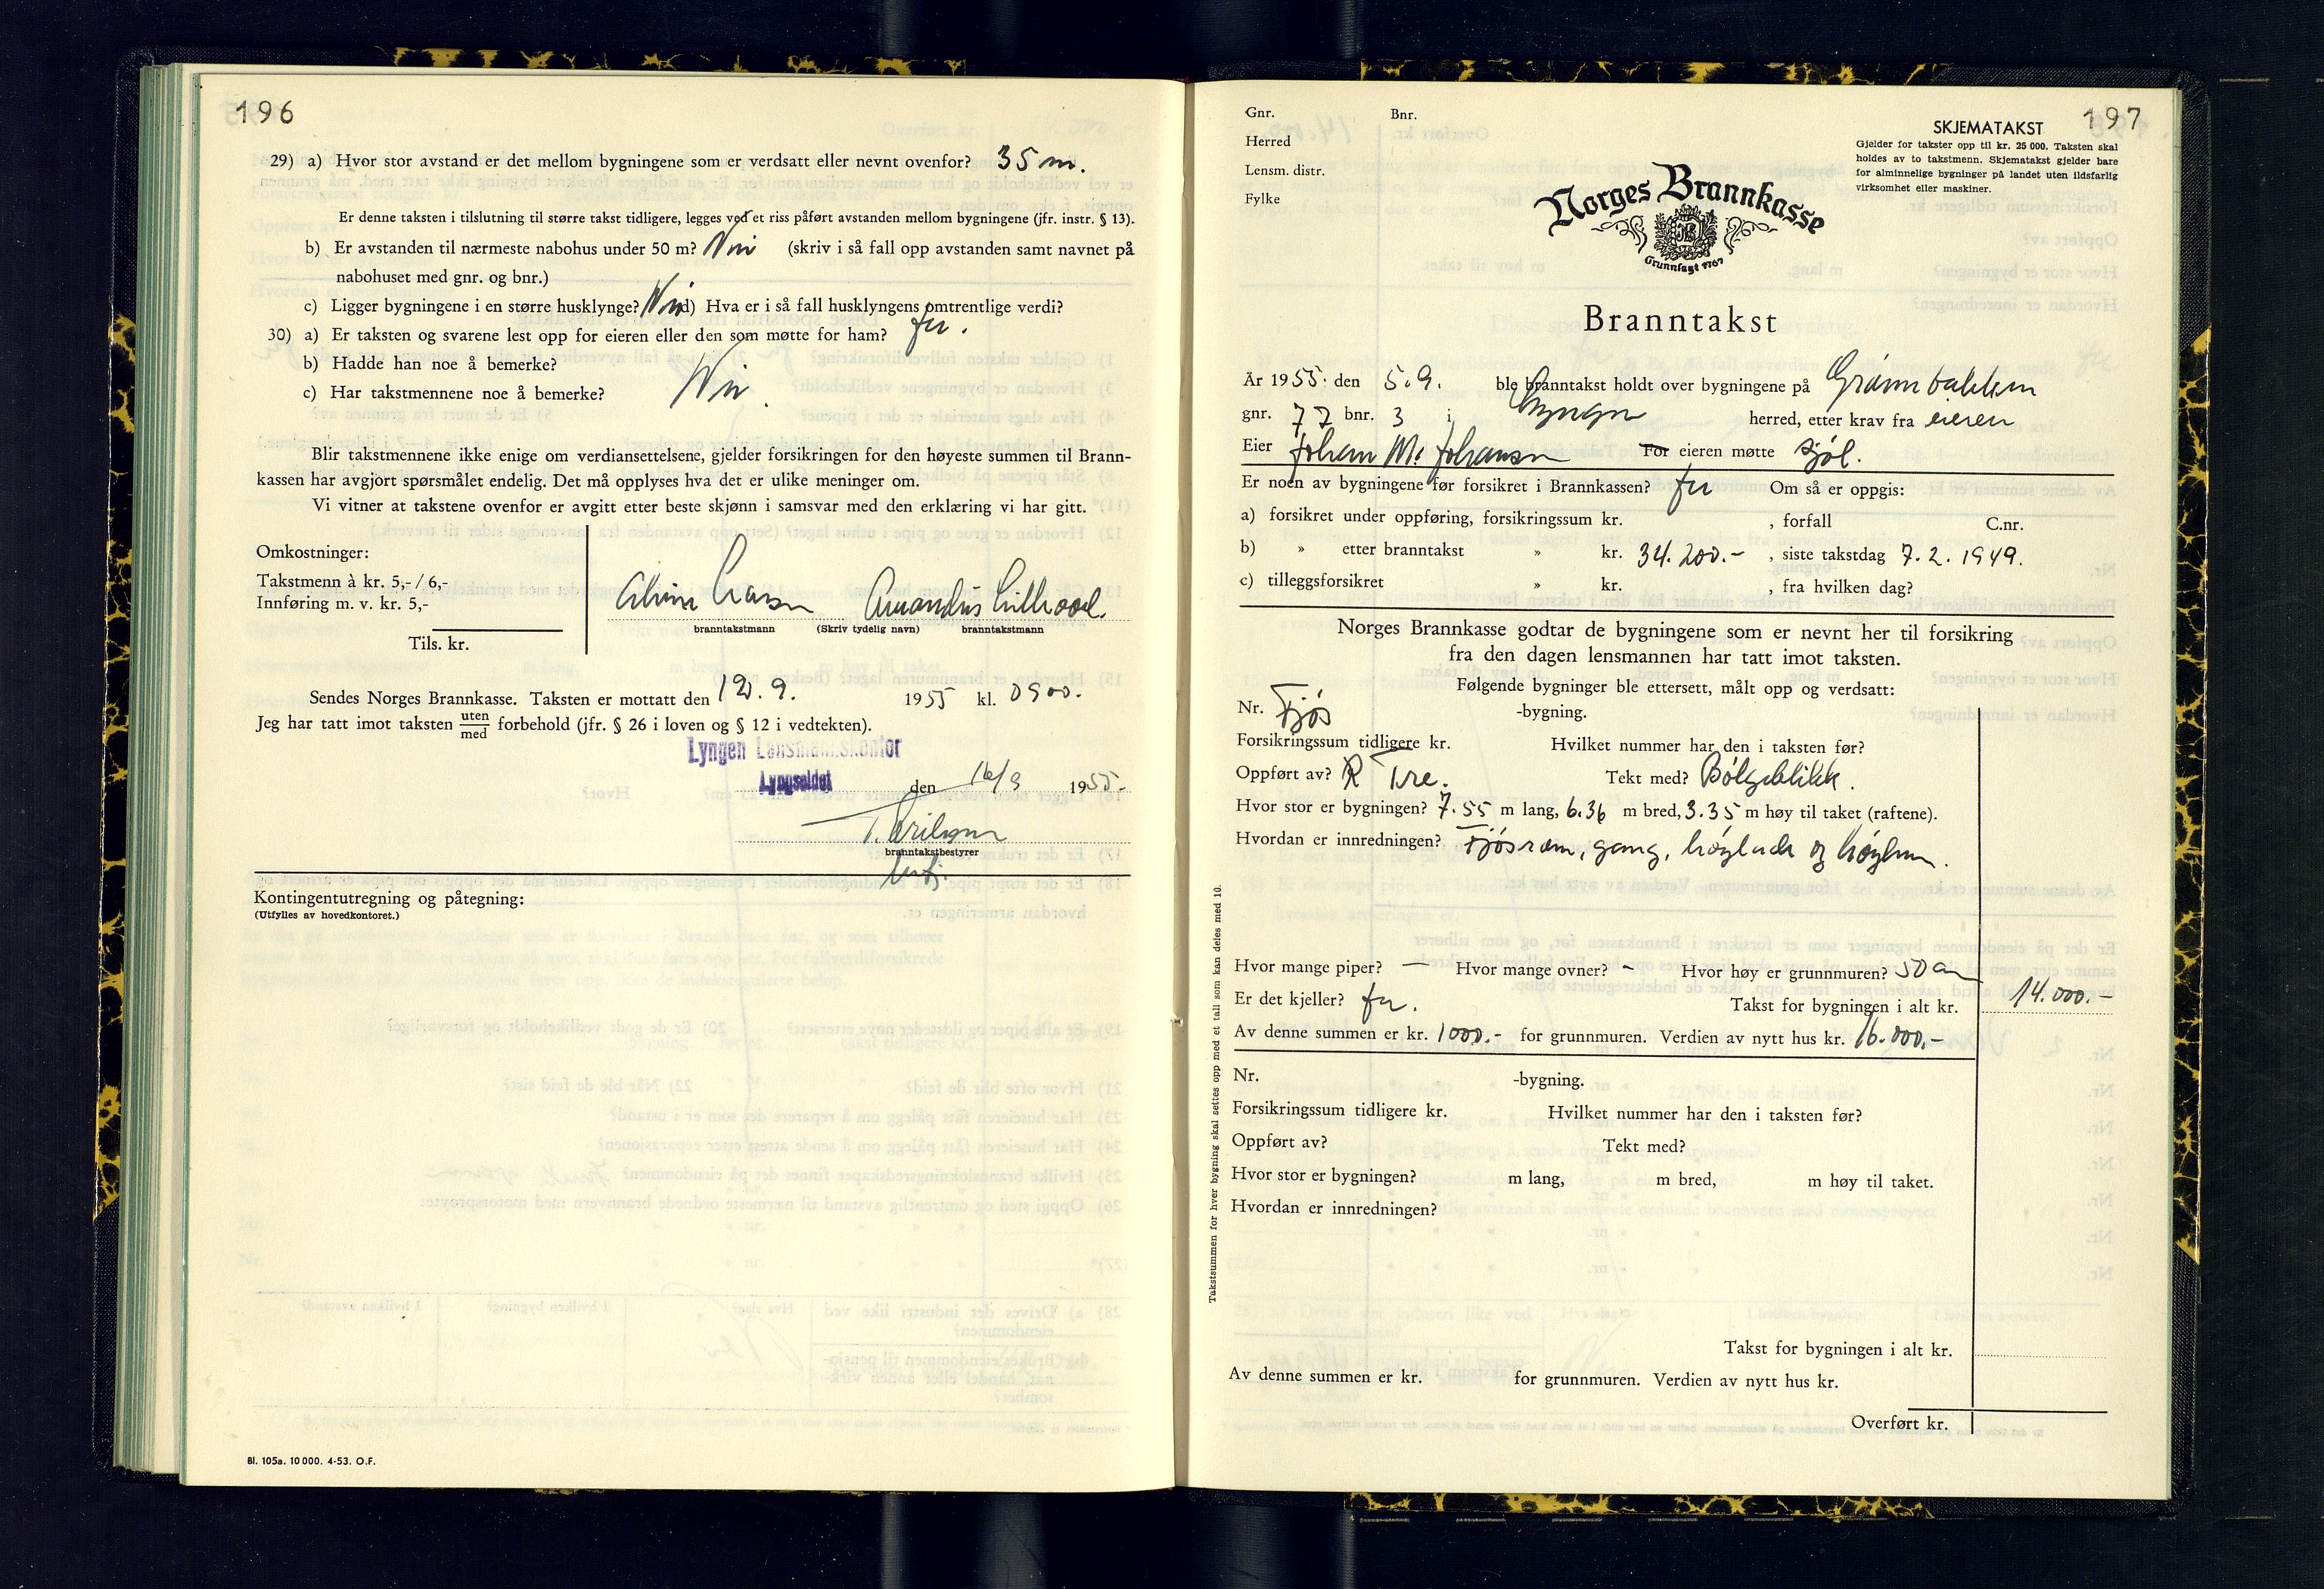 196
29) a) Hvor stor avstand er det mellom bygningene som er verdsatt eller nevnt ovenfor? 35 m.
Er denne taksten i tilslutning til større takst tidligere, legges ved et riss påført avstanden mellom bygningene (jfr. instr. § 13).
b) Er avstanden til nærmeste nabohus under 50 m? Nei (skriv i så fall opp avstanden samt navnet på
nabohuset med gnr. og bnr.)
c) Ligger bygningene i en større husklynge? Nei d) Hva er i så fall husklyngens omtrentlige verdi?
30) a) Er taksten og svarene lest opp for eieren eller den som møtte for ham? ja.
b) Hadde han noe å bemerke?
c) Har takstmennene noe å bemerke? Nei.
Blir takstmennene ikke enige om verdiansettelsene, gjelder forsikringen for den høyeste summen til Brann-
kassen har avgjort spørsmålet endelig. Det må opplyses hva det er ulike meninger om.
Vi vitner at takstene ovenfor er avgitt etter beste skjønn i samsvar med den erklæring vi har gitt.
Omkostninger:
Takstmenn à kr. 5,- / 6,-
Innføring m. v. kr. 5,-
Tils. kr.
Larsen Amandus Lillevoll
branntakstmann (Skriv tydelig navn) branntakstmann
Sendes Norges Brannkasse. Taksten er mottatt den 12. 9. 1955 kl. 0900.
Jeg har tatt imot taksten uten/med forbehold (jfr. § 26 i loven og § 12 i vedtekten).
Lyngen Lensmannskontor
Lyngseidet den 16/9 1955.
branntakstbestyrer
Kontingentutregning og påtegning:
(Utfylles av hovedkontoret.)
Bl. 105a. 10 000. 4-53. O.F.
197
Gnr. Bnr.
Herred
Lensm. distr.
Fylke
SKJEMATAKST
Gjelder for takster opp til kr. 25 000. Taksten skal
holdes av to takstmenn. Skjematakst gjelder bare
for alminnelige bygninger på landet uten ildsfarlig
virksomhet eller maskiner.
Norges Brannkasse
Grunnlagt 1767
Branntakst
År 1955: den 5.9. ble branntakst holdt over bygningene på Grønnbakken
gnr. 77 bnr. 3 i Lyngen herred, etter krav fra eieren
Eier Johan M. Johansen For eieren møtte sjøl.
Er noen av bygningene før forsikret i Brannkassen? ja Om så er oppgis:
a) forsikret under oppføring, forsikringssum kr. , forfall C.nr.
b) » etter branntakst » kr. 34.200.- , siste takstdag 7. 2. 1949.
c) tilleggsforsikret » kr. , fra hvilken dag?
Norges Brannkasse godtar de bygningene som er nevnt her til forsikring
fra den dagen lensmannen har tatt imot taksten.
Følgende bygninger ble ettersett, målt opp og verdsatt:
Nr. Fjøs -bygning.
Forsikringssum tidligere kr. Hvilket nummer har den i taksten før?
Oppført av? R Tre. Tekt med? Bølgeblikk.
Hvor stor er bygningen? 7.55 m lang, 6.36 m bred, 3.35 m høy til taket (raftene).
Hvordan er innredningen? Fjøsrom, gang, høylade og høylem.
Hvor mange piper? — Hvor mange ovner? - Hvor høy er grunnmuren? 50 cm
Er det kjeller? ja. Takst for bygningen i alt kr. 14.000.-
Av denne summen er kr. 1000.- for grunnmuren. Verdien av nytt hus kr. 16.000.-
Nr. -bygning.
Forsikringssum tidligere kr. Hvilket nummer har den i taksten før?
Oppført av? Tekt med?
Hvor stor er bygningen? m lang, m bred, m høy til taket.
Hvordan er innredningen?
Takst for bygningen i alt kr.
Av denne summen er kr. for grunnmuren. Verdien av nytt hus kr.
Overført kr.
Takstsummen for hver bygning skal settes opp med et tall som kan deles med 10.